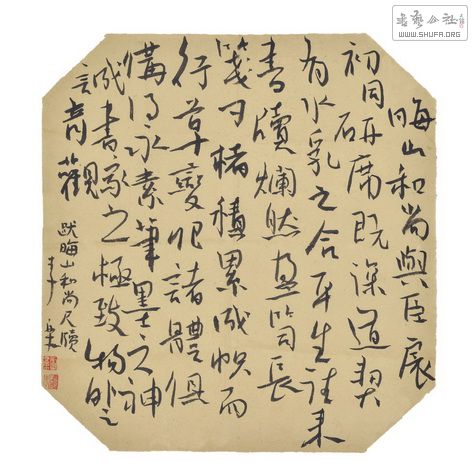 書艺公社
.org
WWW.SHUFA.ORG
晦山和尚與臣
初同研席既深道契
为水乳之合平生往来
書牘爛然盈笥長
箋寸楮積累成帙而
行草變化諸體俱
備得永素筆墨之神
誠書家之極致物外之
觀
跋晦山和尚尺牘